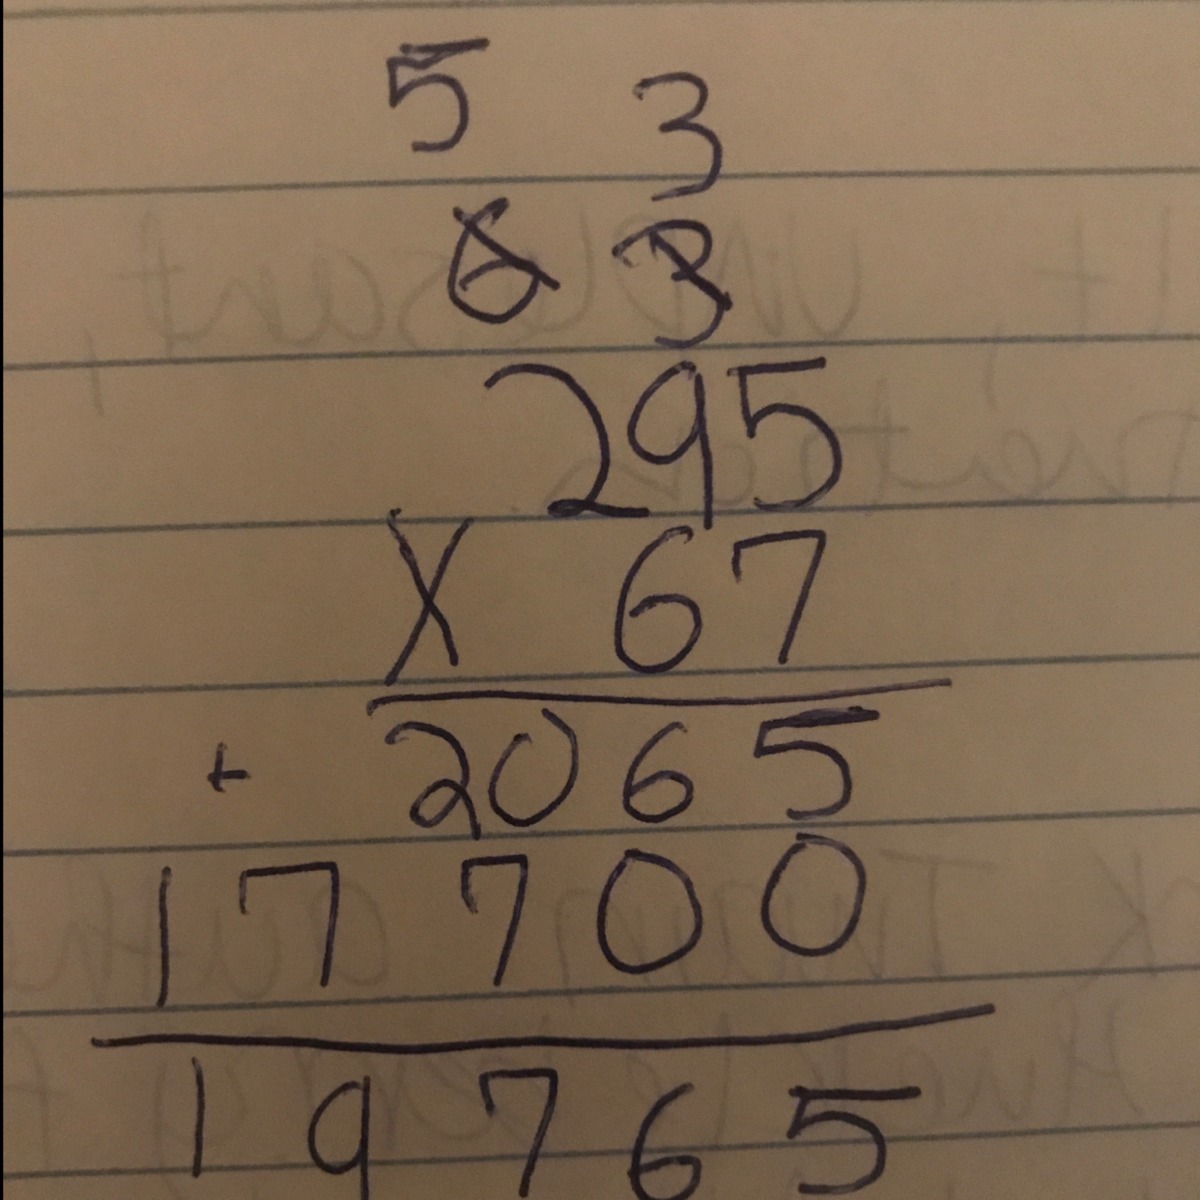 5 3
6 3
295
X 67
+ 2065
17700
19765